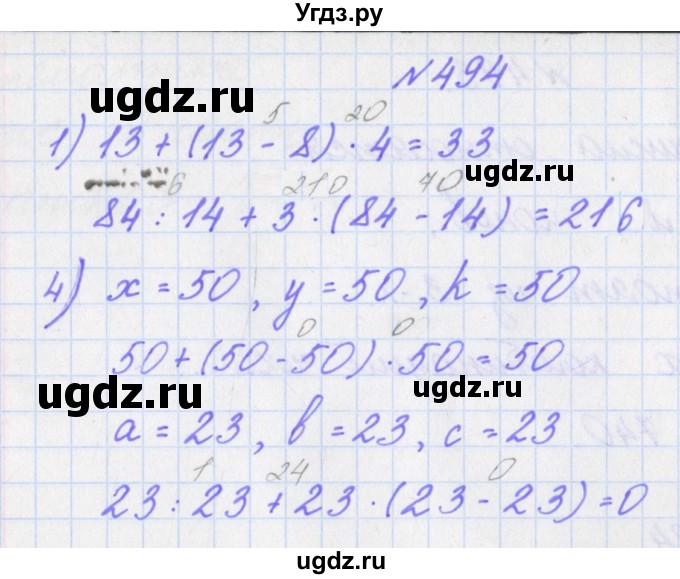 Угдз.ру
№494
ugdz.ru
5 20
1) 13 + (13 - 8) · 4 = 33
ugdz.ru
6 210 70
84 : 14 + 3 · (84 - 14) = 216
4) x = 50, y = 50, k = 50
0 0
50 + (50 - 50) · 50 = 50
ugdz.ru
ugdz.ru
a = 23, b = 23, c = 23
1 24 0
23 : 23 + 23 · (23 - 23) = 0
ugdz.ru